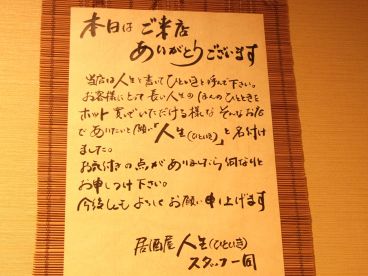 本日は ご来店
ありがとうございます
当店は人生と書いてひといきと呼んで下さい。
お客様にとって長い人生のほんのひとときを
ホッと寛いでいただける様な そんなお店
でありたいと願い「人生(ひといき)」と名付け
ました。
お気付きの点がありましたら何なりと
お申しつけ下さい。
今後とも よろしくお願い申し上げます
居酒屋 人生(ひといき)
スタッフ一同